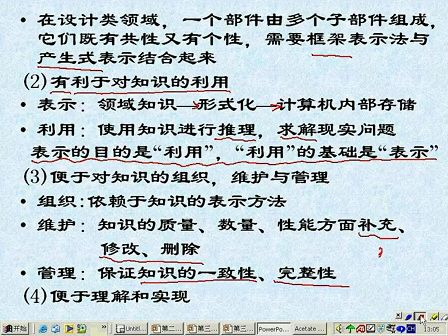 • 在设计类领域，一个部件由多个子部件组成，
它们既有共性又有个性，需要框架表示法与
产生式表示结合起来
(2) 有利于对知识的利用
• 表示：领域知识→形式化→计算机内部存储
• 利用：使用知识进行推理，求解现实问题
表示的目的是“利用”，“利用”的基础是“表示”
(3) 便于对知识的组织，维护与管理
• 组织:依赖于知识的表示方法
• 维护：知识的质量、数量、性能方面补充、
修改、删除
• 管理：保证知识的一致性、完整性
(4) 便于理解和实现
开始 Untitl... 第二... 第三... 第三... PowerPo... Acetate ... 13:05